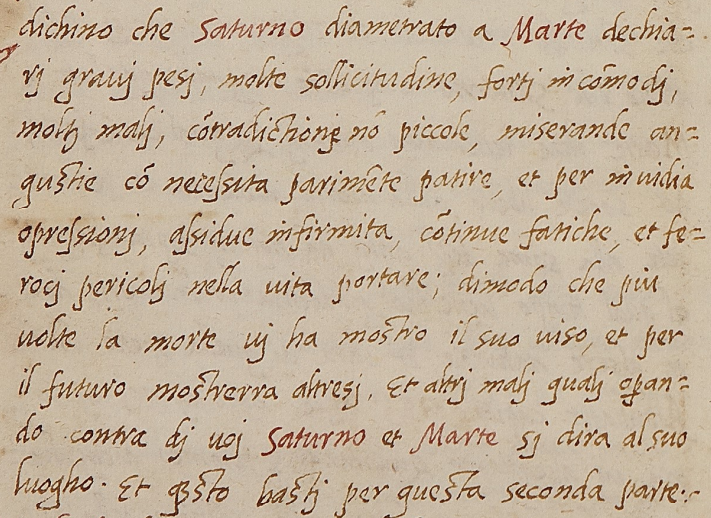 dichino che Saturno diametrato a Marte dechia=
rj gravj pesj, molte sollicitudine, fortj incõmodj,
moltj malj, cõtradictione nõ piccole, miserande an=
gustie cõ necessita parimẽte patire, et per invidia
opressionj, assidue infirmita, cõtinue fatiche, et fe=
rocj pericolj nella vita portare; dimodo che piu
uolte la morte uj ha mostro il suo uiso, et per
il futuro mostrerra altresj. Et altrj malj qualj opan=
do contra dj uoj Saturno et Marte sj dira al suo
luogho. Et qsto bastj per questa seconda parte.